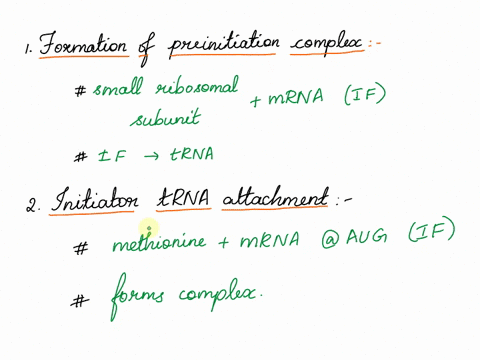 1. Formation of preinitiation complex :-
# small ribosomal subunit + mRNA (IF)
# IF → tRNA
2. Initiator tRNA attachment :-
# methionine + mRNA @ AUG (IF)
# forms complex.